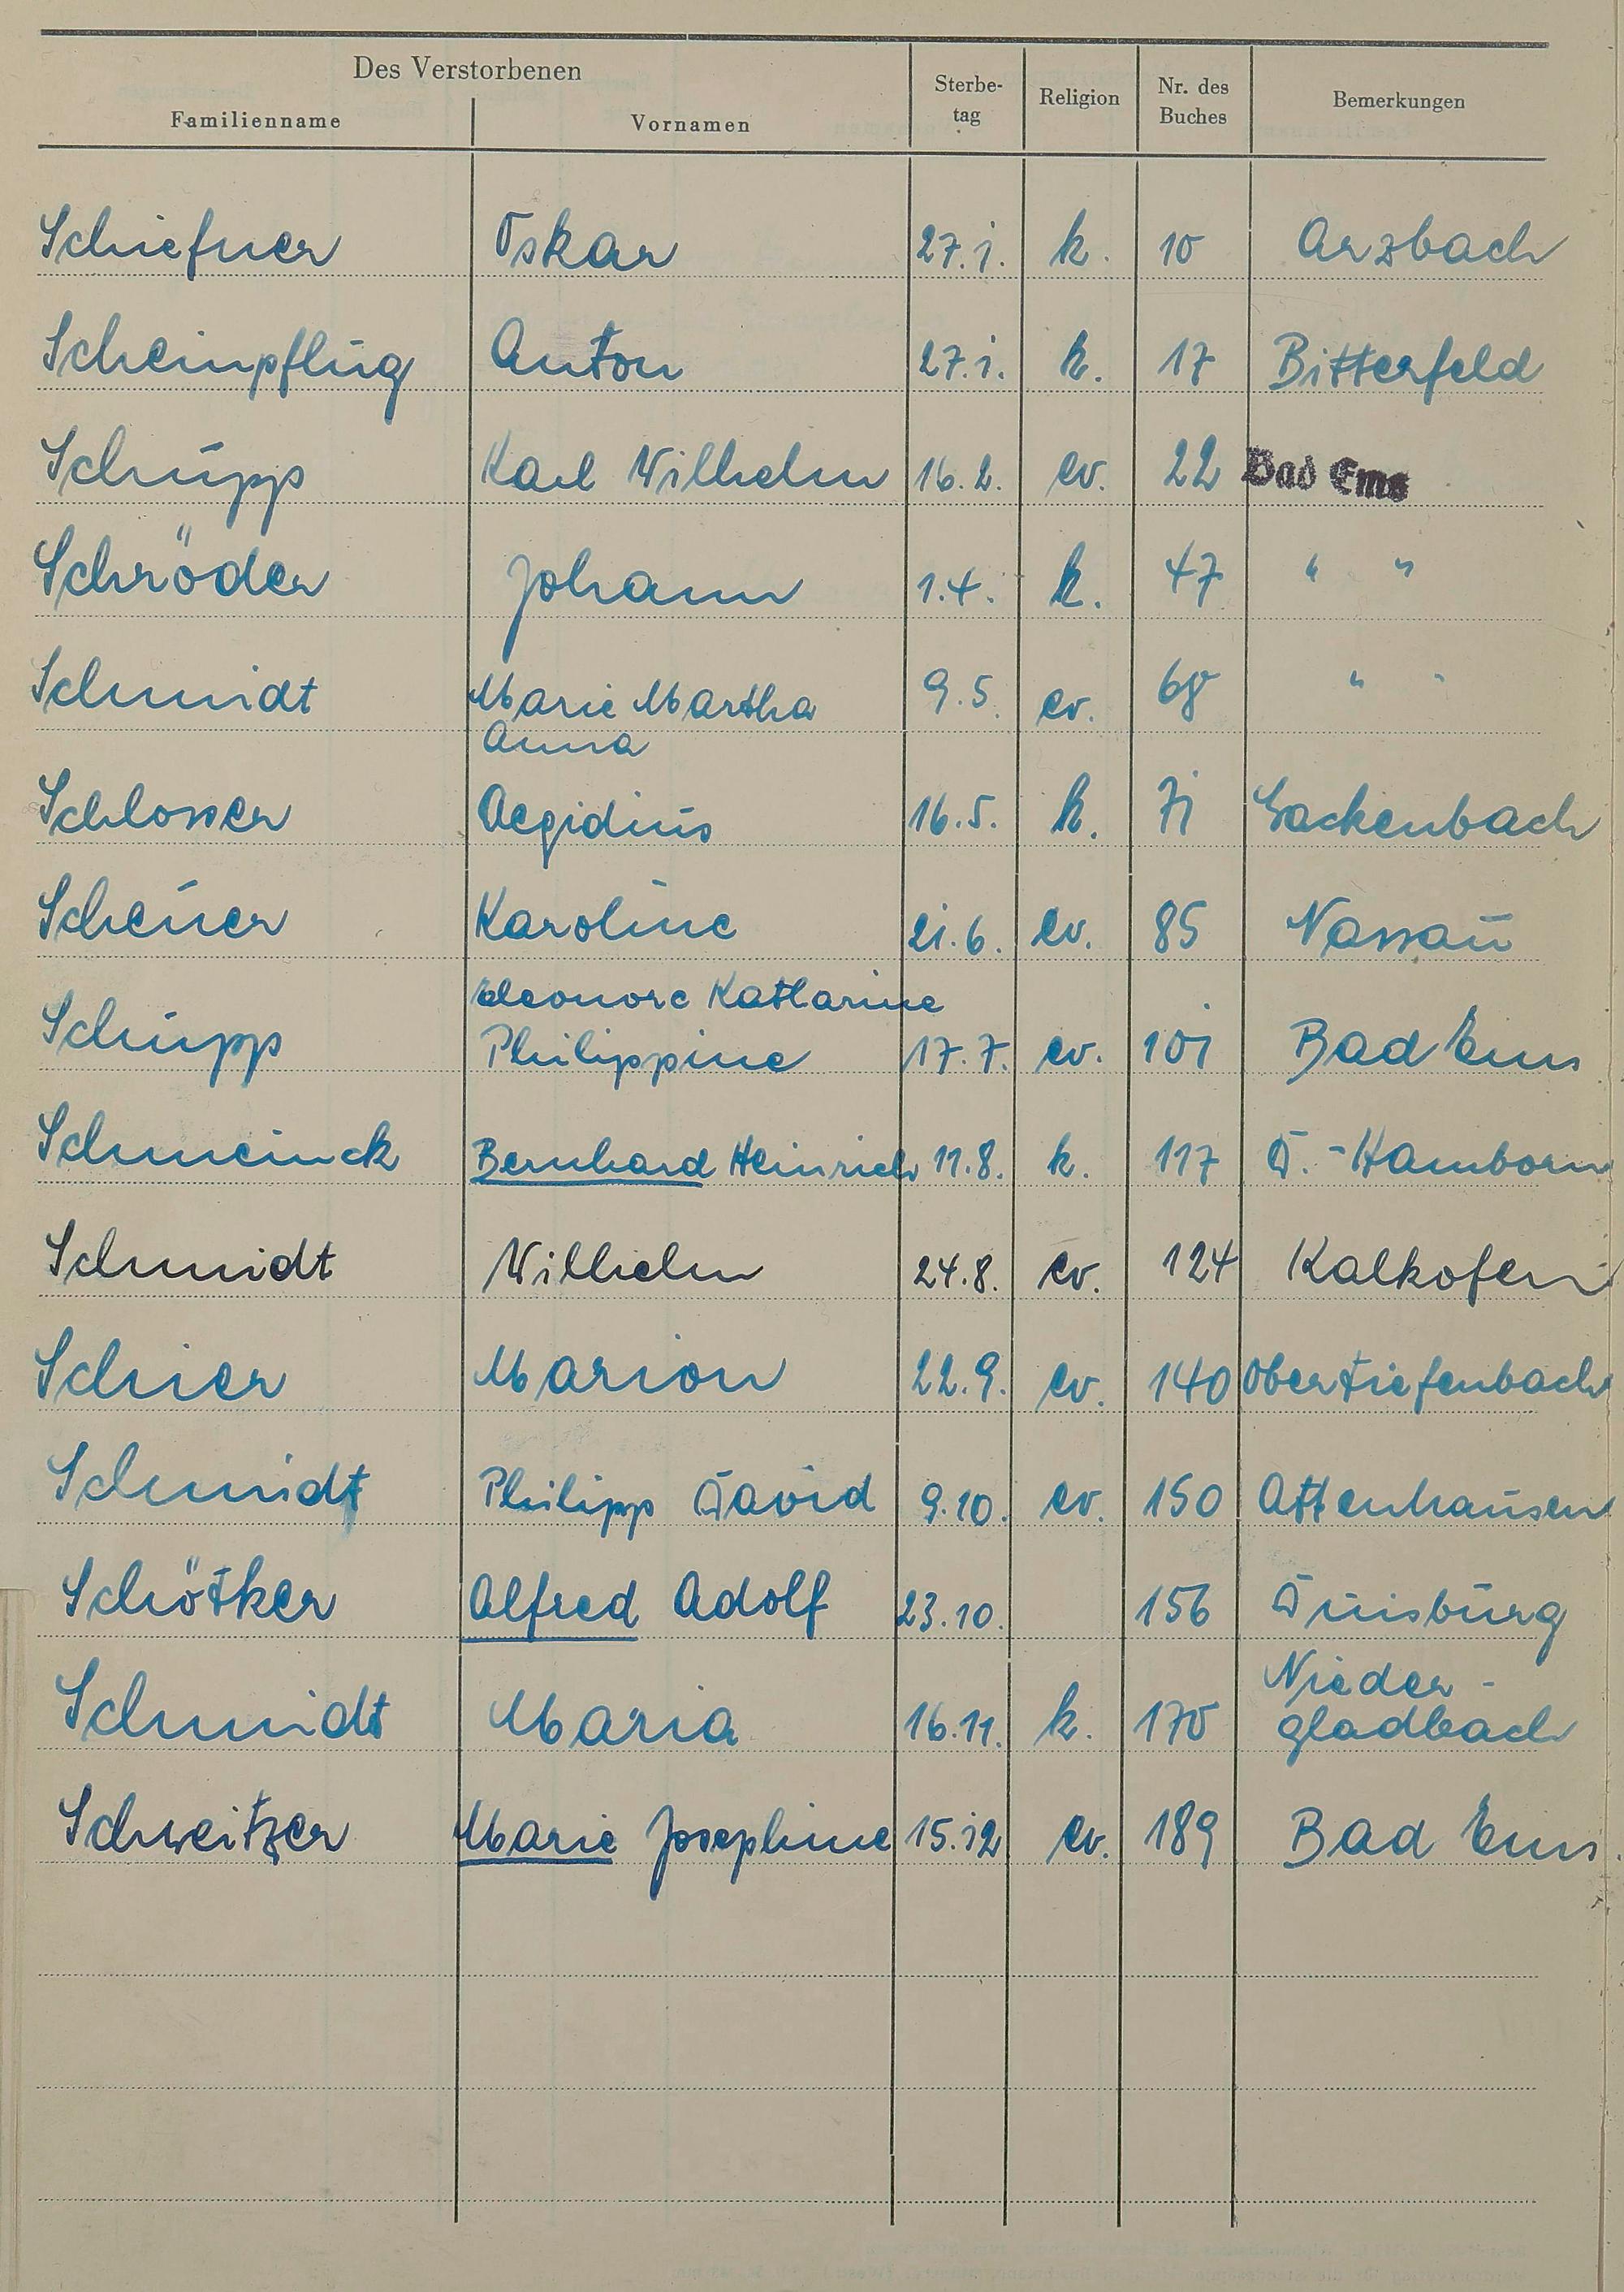 Des Verstorbenen
Familienname Vornamen Sterbe-tag Religion Nr. des Buches Bemerkungen
Schiefner Oskar 27.1. k. 10 Arzbach
Scheinpflug Anton 27.1. k. 17 Bitterfeld
Schupp Karl Wilhelm 16.2. ev. 22 Bad Ems
Schröder Johann 1.4. k. 47 " "
Schmidt Marie Martha 9.5. ev. 68 " "
Anna
Schlosser Aegidius 16.5. k. 71 Gackenbach
Scheuer Karoline 21.6. ev. 85 Nassau
Eleonore Katharine
Schupp Philippine 17.7. ev. 101 Bad Ems
Schmeinck Bernhard Heinrich 11.8. k. 117 D.-Hamborn
Schmidt Wilhelm 24.8. ev. 124 Kalkofen
Schier Marion 22.9. ev. 140 Obertiefenbach
Schmidt Philipp David 9.10. ev. 150 Attenhausen
Schötker Alfred Adolf 23.10. 156 Duisburg
Nieder-
Schmidt Maria 16.11. k. 170 gladbach
Schweitzer Marie Josephine 15.12 ev. 189 Bad Ems.